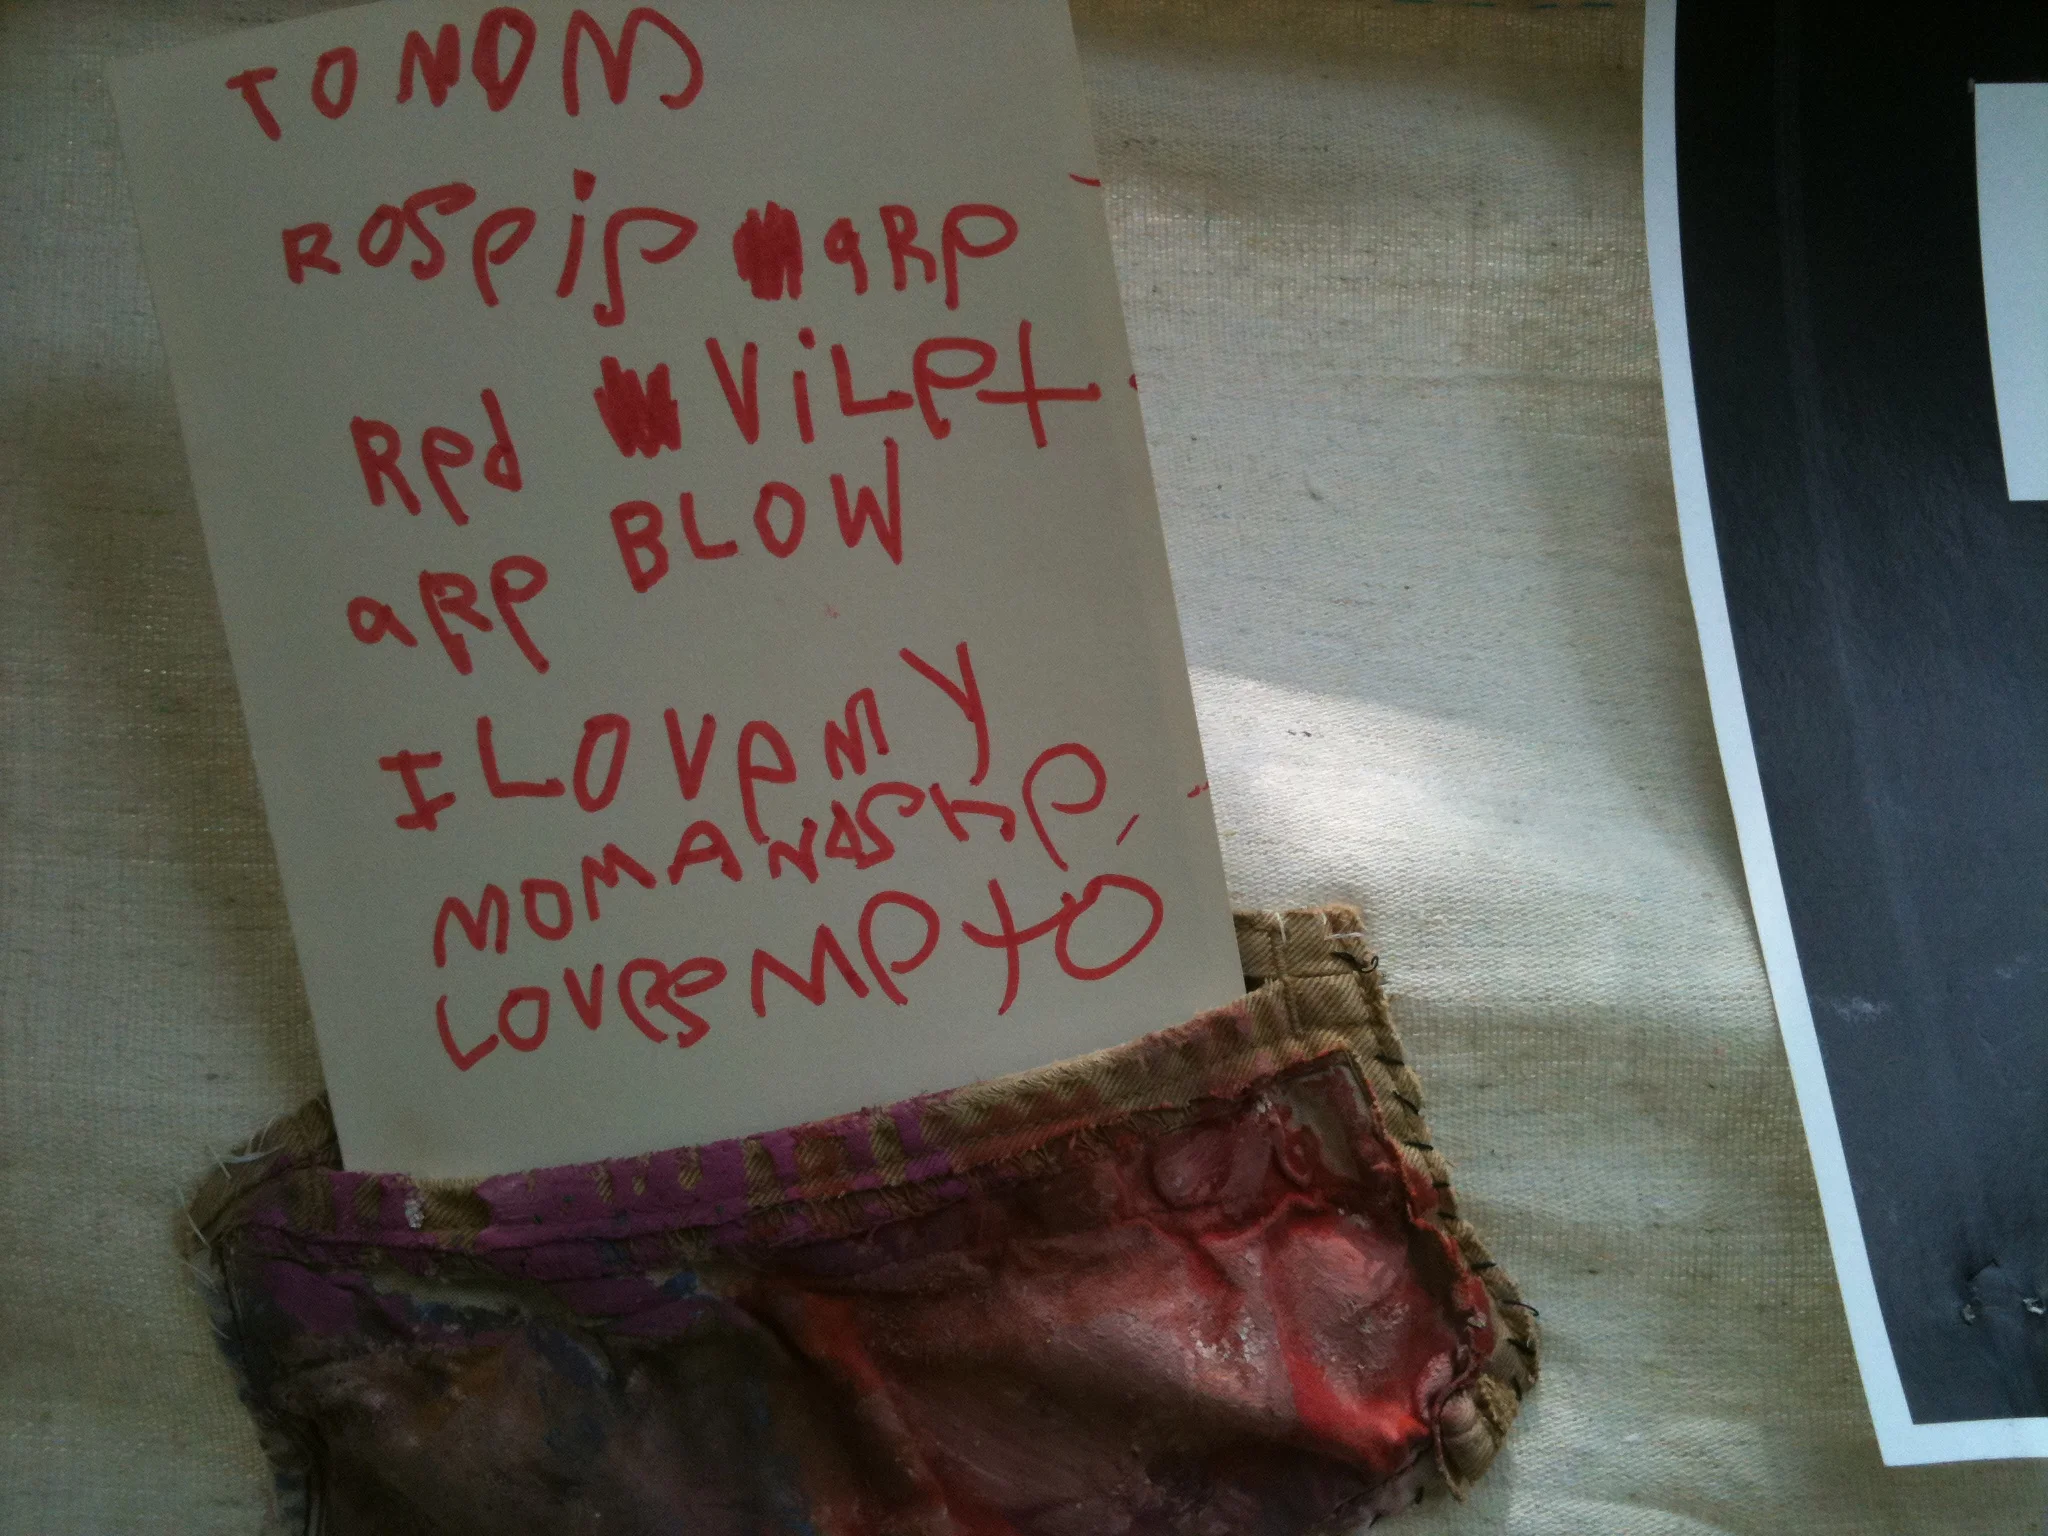 TO MOM
ROSeis aRe
Red ViLet
aRe BLOW
I LOVe MY
MOM ANd SHe
LOVeS Me tO